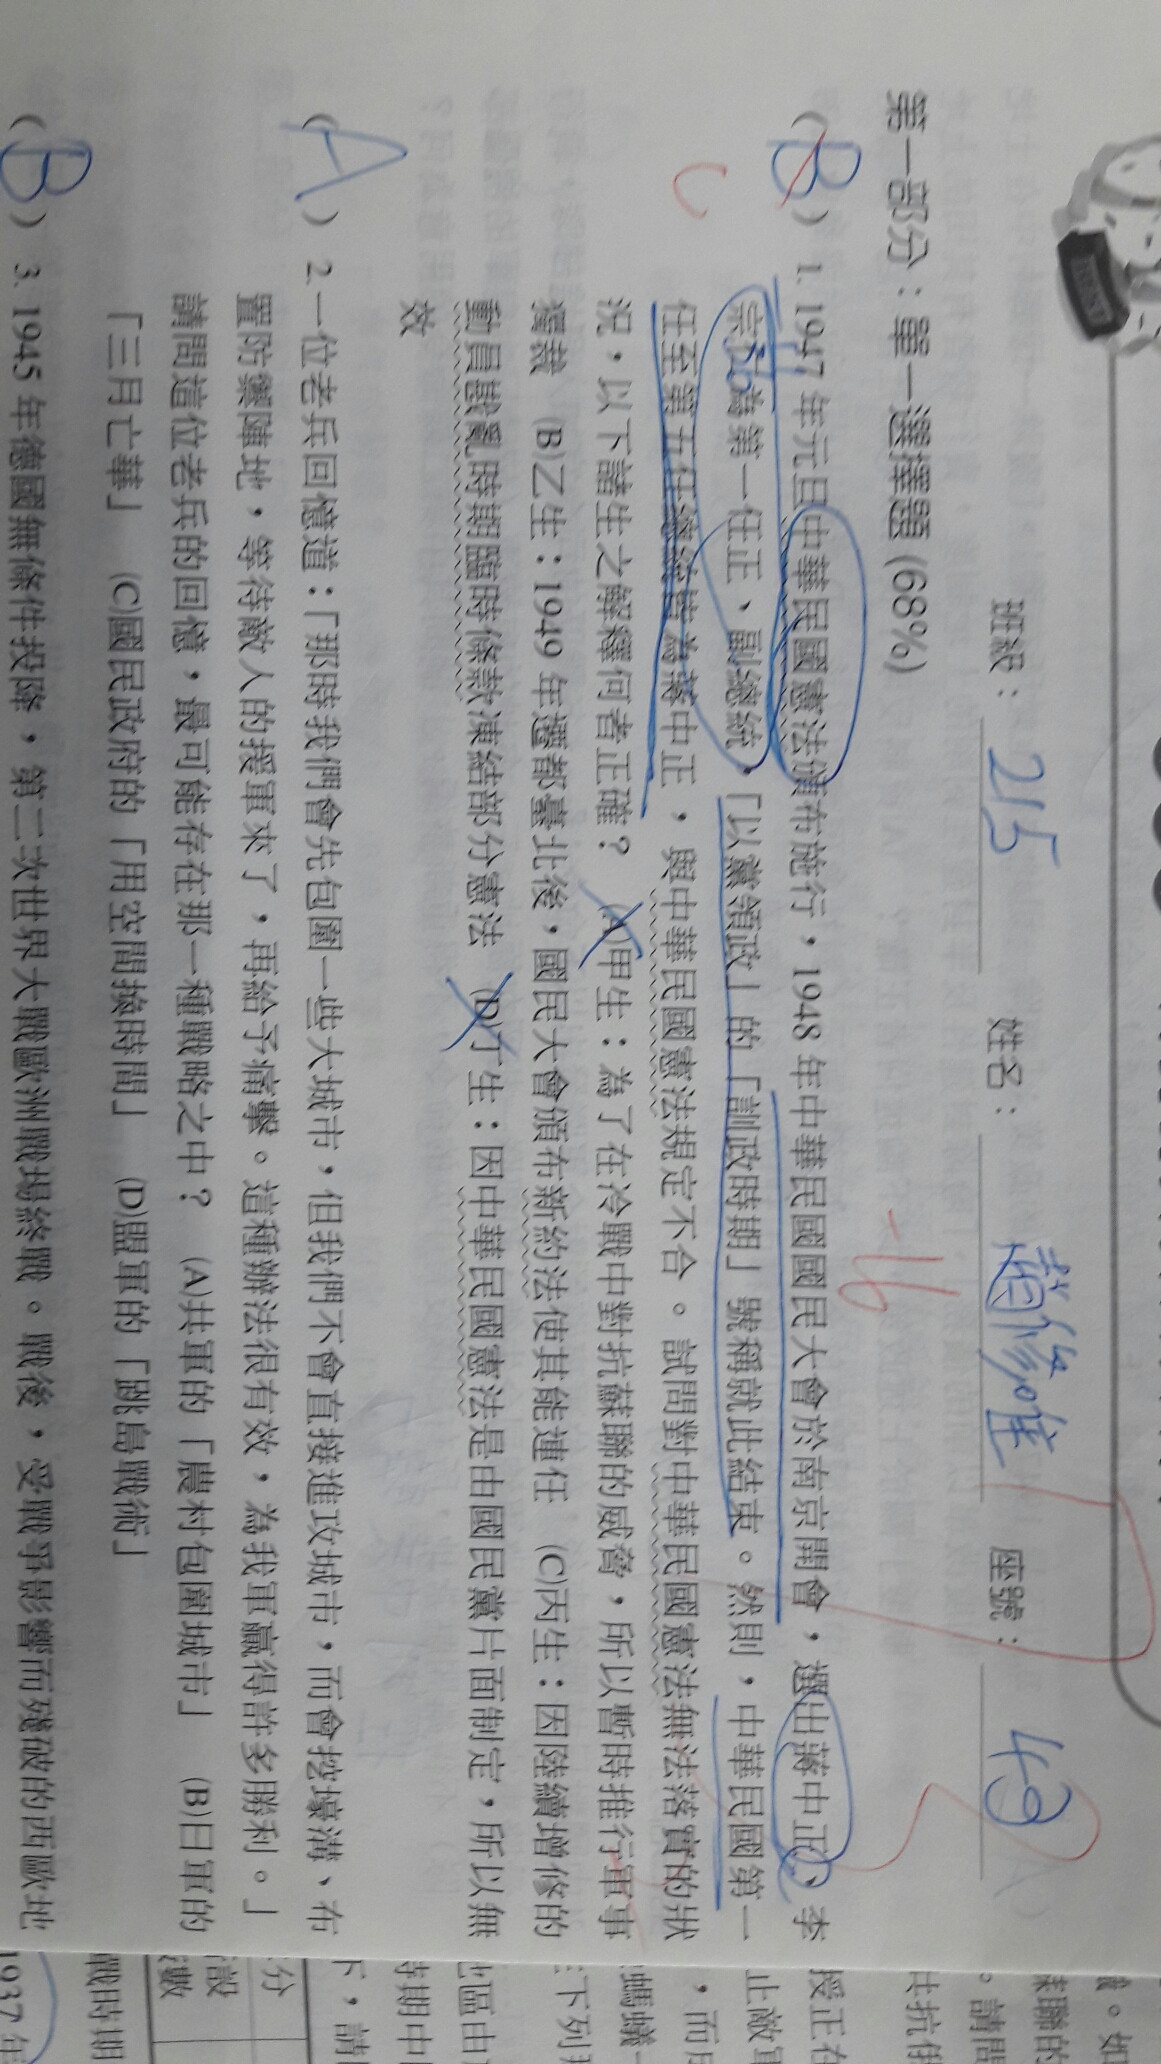 班級：215 姓名：趙修唯 座號：49
第一部分：單一選擇題 (68%)
-16
(B) 1. 1947 年元旦中華民國憲法頒布施行，1948 年中華民國國民大會於南京開會，選出蔣中正、李
C
宗仁為第一任正、副總統，「以黨領政」的「訓政時期」號稱就此結束。然則，中華民國第一
任至第五任總統皆為蔣中正，與中華民國憲法規定不合。試問對中華民國憲法無法落實的狀
況，以下諸生之解釋何者正確？ (A)甲生：為了在冷戰中對抗蘇聯的威脅，所以暫時推行軍事
獨裁 (B)乙生：1949 年遷都臺北後，國民大會頒布新約法使其能連任 (C)丙生：因陸續增修的
動員戡亂時期臨時條款凍結部分憲法 (D)丁生：因中華民國憲法是由國民黨片面制定，所以無
效
(A) 2. 一位老兵回憶道：「那時我們會先包圍一些大城市，但我們不會直接進攻城市，而會挖壕溝、布
置防禦陣地，等待敵人的援軍來了，再給予痛擊。這種辦法很有效，為我軍贏得許多勝利。」
請問這位老兵的回憶，最可能存在那一種戰略之中？ (A)共軍的「農村包圍城市」 (B)日軍的
「三月亡華」 (C)國民政府的「用空間換時間」 (D)盟軍的「跳島戰術」
(B) 3. 1945 年德國無條件投降，第二次世界大戰歐洲戰場終戰。戰後，受戰爭影響而殘破的西歐地